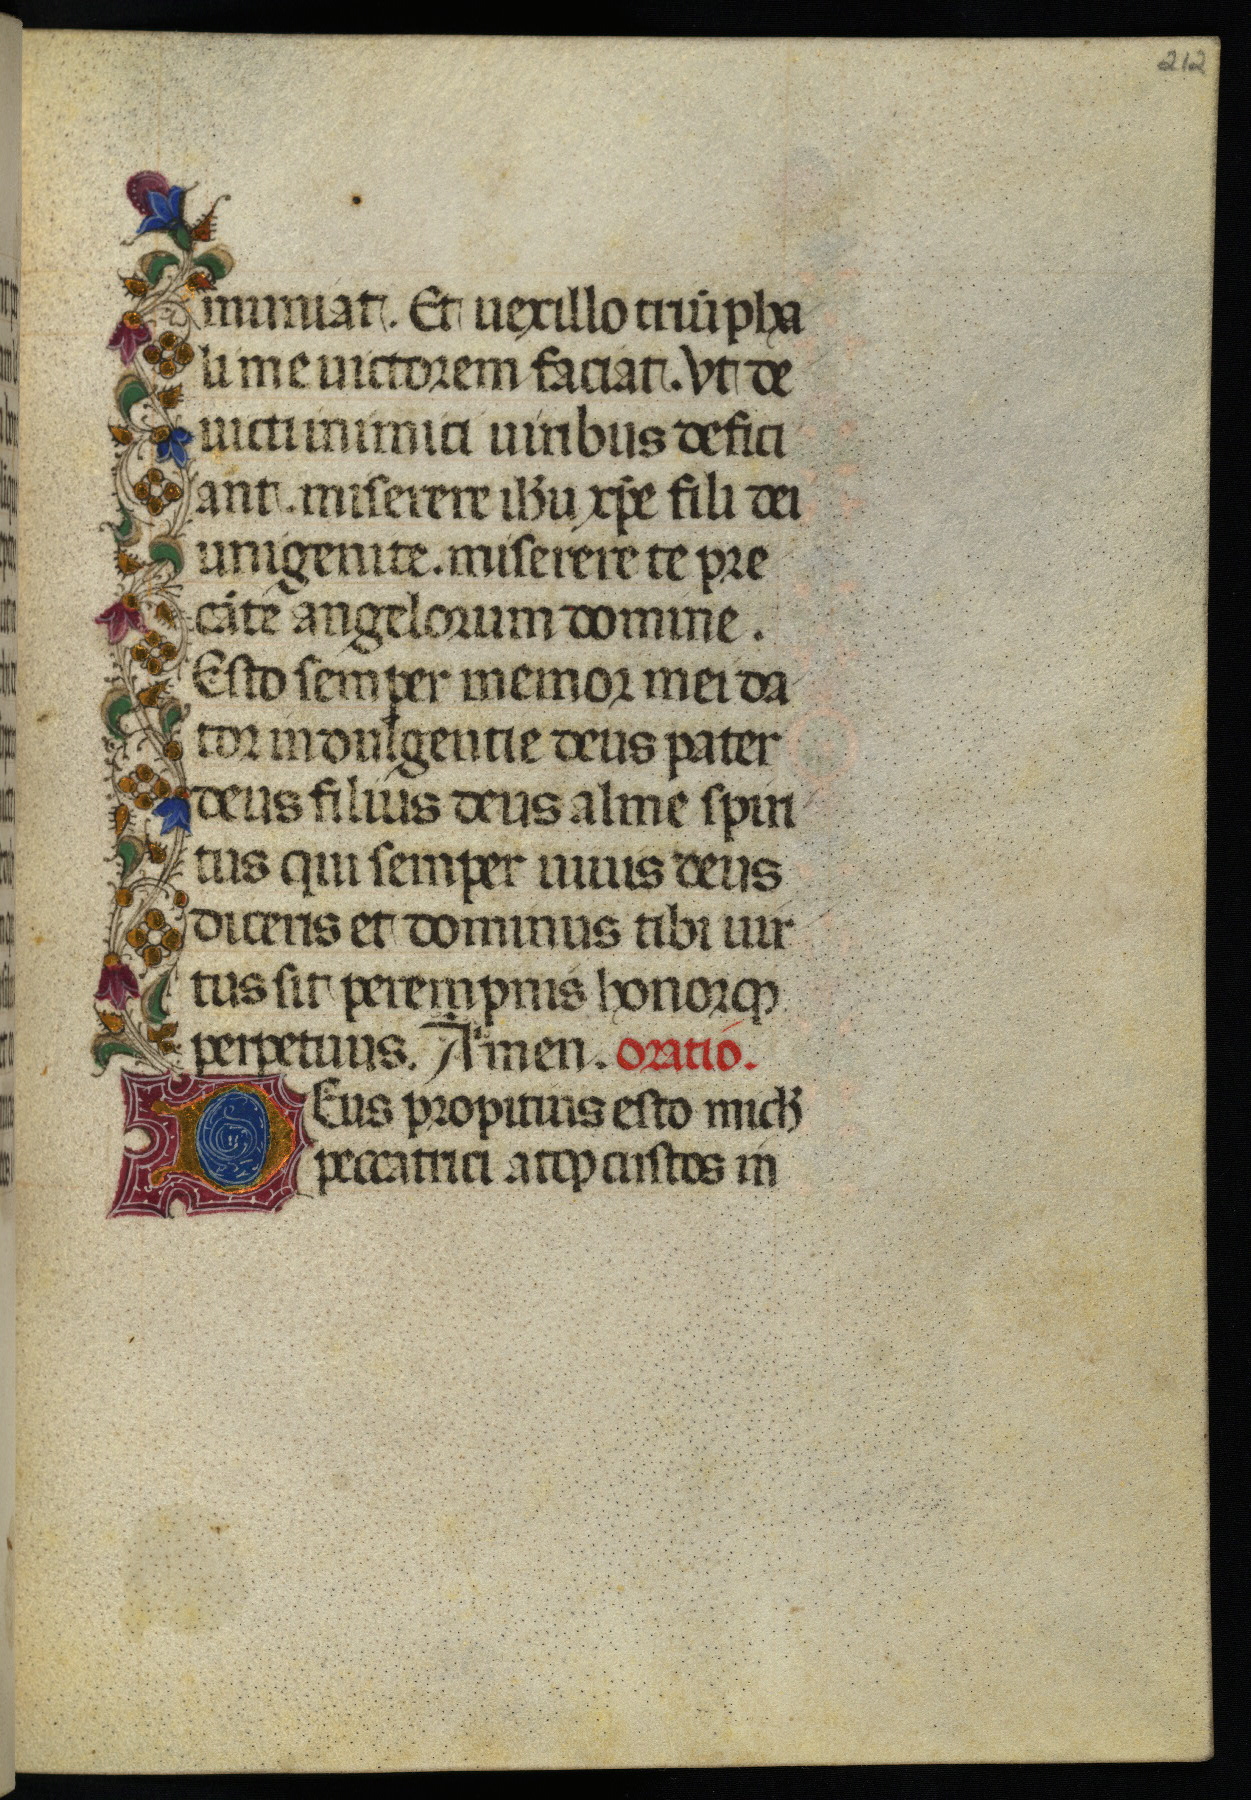 212
muniat. Et uexillo triūpha
li me uictorem faciat. Vt de
uicti inimici uiribus defici
ant. miserere ihu xp̄e fili dei
unigenite. miserere te pre
cāte angelorum domine.
Esto semper memor mei da
tor indulgentie deus pater
deus filius deus alme spiri
tus qui semper unus deus
diceris et dominus tibi uir
tus sit perempnis honorqꝫ
perpetuus. Amen. oratio.
Deus propitius esto mich
peccatrici atqꝫ custos in